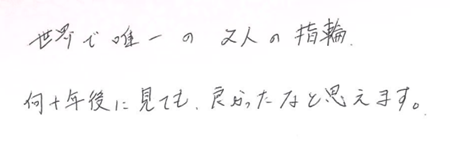 世界で唯一の2人の指輪.
何十年後に見ても、良かったなと思えます。